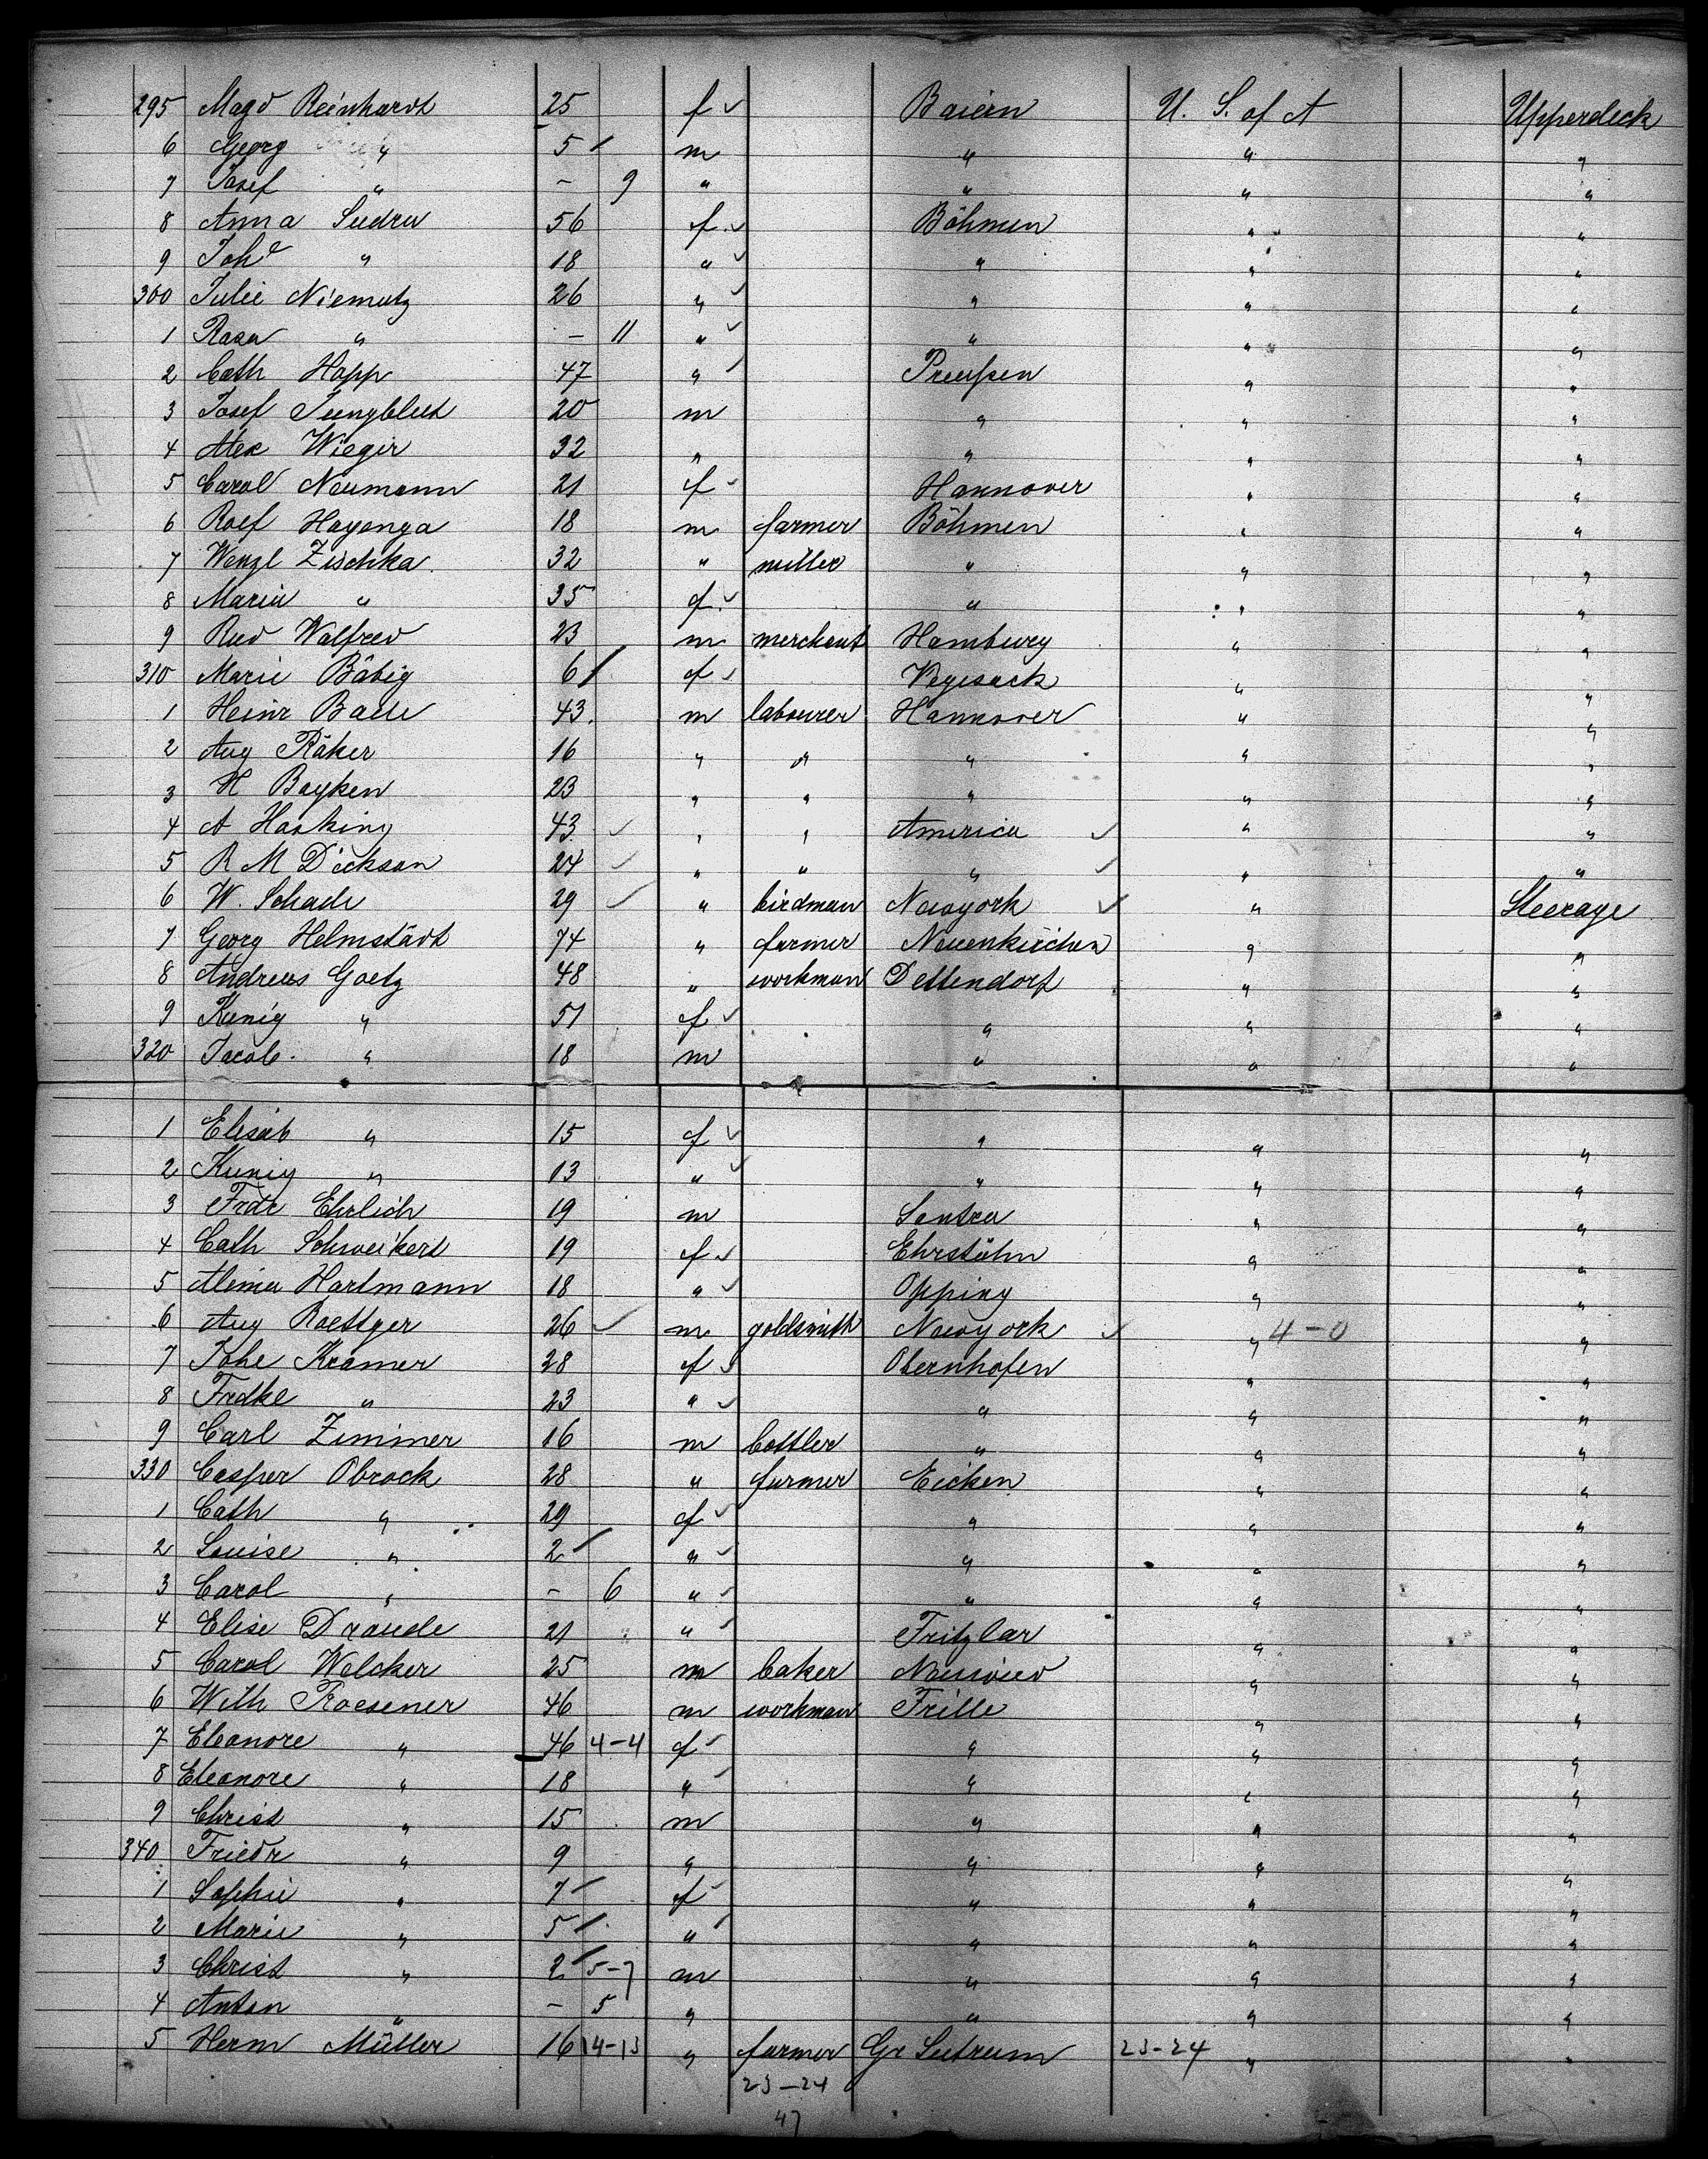 295 Magd Reinhardt 25 f Baiern U. S. of A Upperdeck
6 Georg " 5 m " " "
7 Josef " – 9 " " " "
8 Anna Sudra 56 f Böhmen " "
9 Joh " 18 " " " "
300 Julie Niemutz 26 " " " "
1 Rosa " – 11 " " " "
2 Cath Hopp 47 " Preußen " "
3 Josef Jungblut 20 m " " "
4 Alex Wiegir 32 " " " "
5 Carol Neumann 21 f Hannover " "
6 Roef Hayonga 18 m farmer Böhmen " "
7 Wenzl Zischka 32 " miller " " "
8 Maria " 35 f " " "
9 Rud Walfred 23 m merchant Hamburg " "
310 Marie Bäbig 6 f Vegesack " "
1 Heinr Bade 43 m labourer Hannover " "
2 Aug Räker 16 " " " " "
3 H Bayken 23 " " " " "
4 A Hosking 43 " " America " "
5 R M Dickson 24 " " " " "
6 W. Schade 29 " birdman Newyork " Steerage
7 Georg Helmstädt 74 " farmer Neuenkirchen " "
8 Andreas Goetz 48 " workman Dettendorf " "
9 Kunig " 51 f " " "
320 Jacob " 18 m " " "
1 Elisab " 15 f " " "
2 Kunig " 13 " " " "
3 Frdr Ehrlich 19 m Sontra " "
4 Cath Schweikert 19 f Ehrstöhn " "
5 Almia Hartmann 18 " Opping " "
6 Aug Roettger 26 m goldsmith Newyork " 4–0 "
7 Johe Kramer 28 f Obernhofen " "
8 Frdke " 23 " " " "
9 Carl Zimmer 16 m Cottler " " "
330 Casper Obrock 28 " farmer Eicken " "
1 Cath " 29 f " " "
2 Louise " 2 " " " "
3 Carol " – 6 " " " "
4 Elise Draude 21 " Fritzlar " "
5 Carol Welcker 25 m baker Neuwied " "
6 Wilh Troesener 46 m workman Frille " "
7 Eleonore " 46 4–4 f " " "
8 Eleonore " 18 " " " "
9 Christ " 15 m " " "
340 Friedr " 9 " " " "
1 Sophie " 7 f " " "
2 Marie " 5 " " " "
3 Christ " 2 5–7 m " " "
4 Anton " – 5 " " " "
5 Herm Müller 16 14–13 " farmer Gr Sutrum 23–24 " "
23–24
47